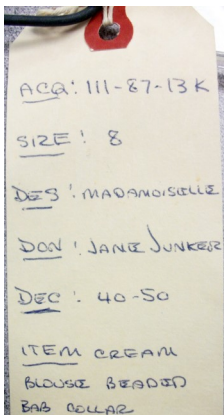 ACQ: 111-87-13K
SIZE: 8
DES: MADAMOISELLE
DON: JANE JUNKER
DEC: 40-50
ITEM CREAM
BLOUSE BEADED
BAB COLLAR